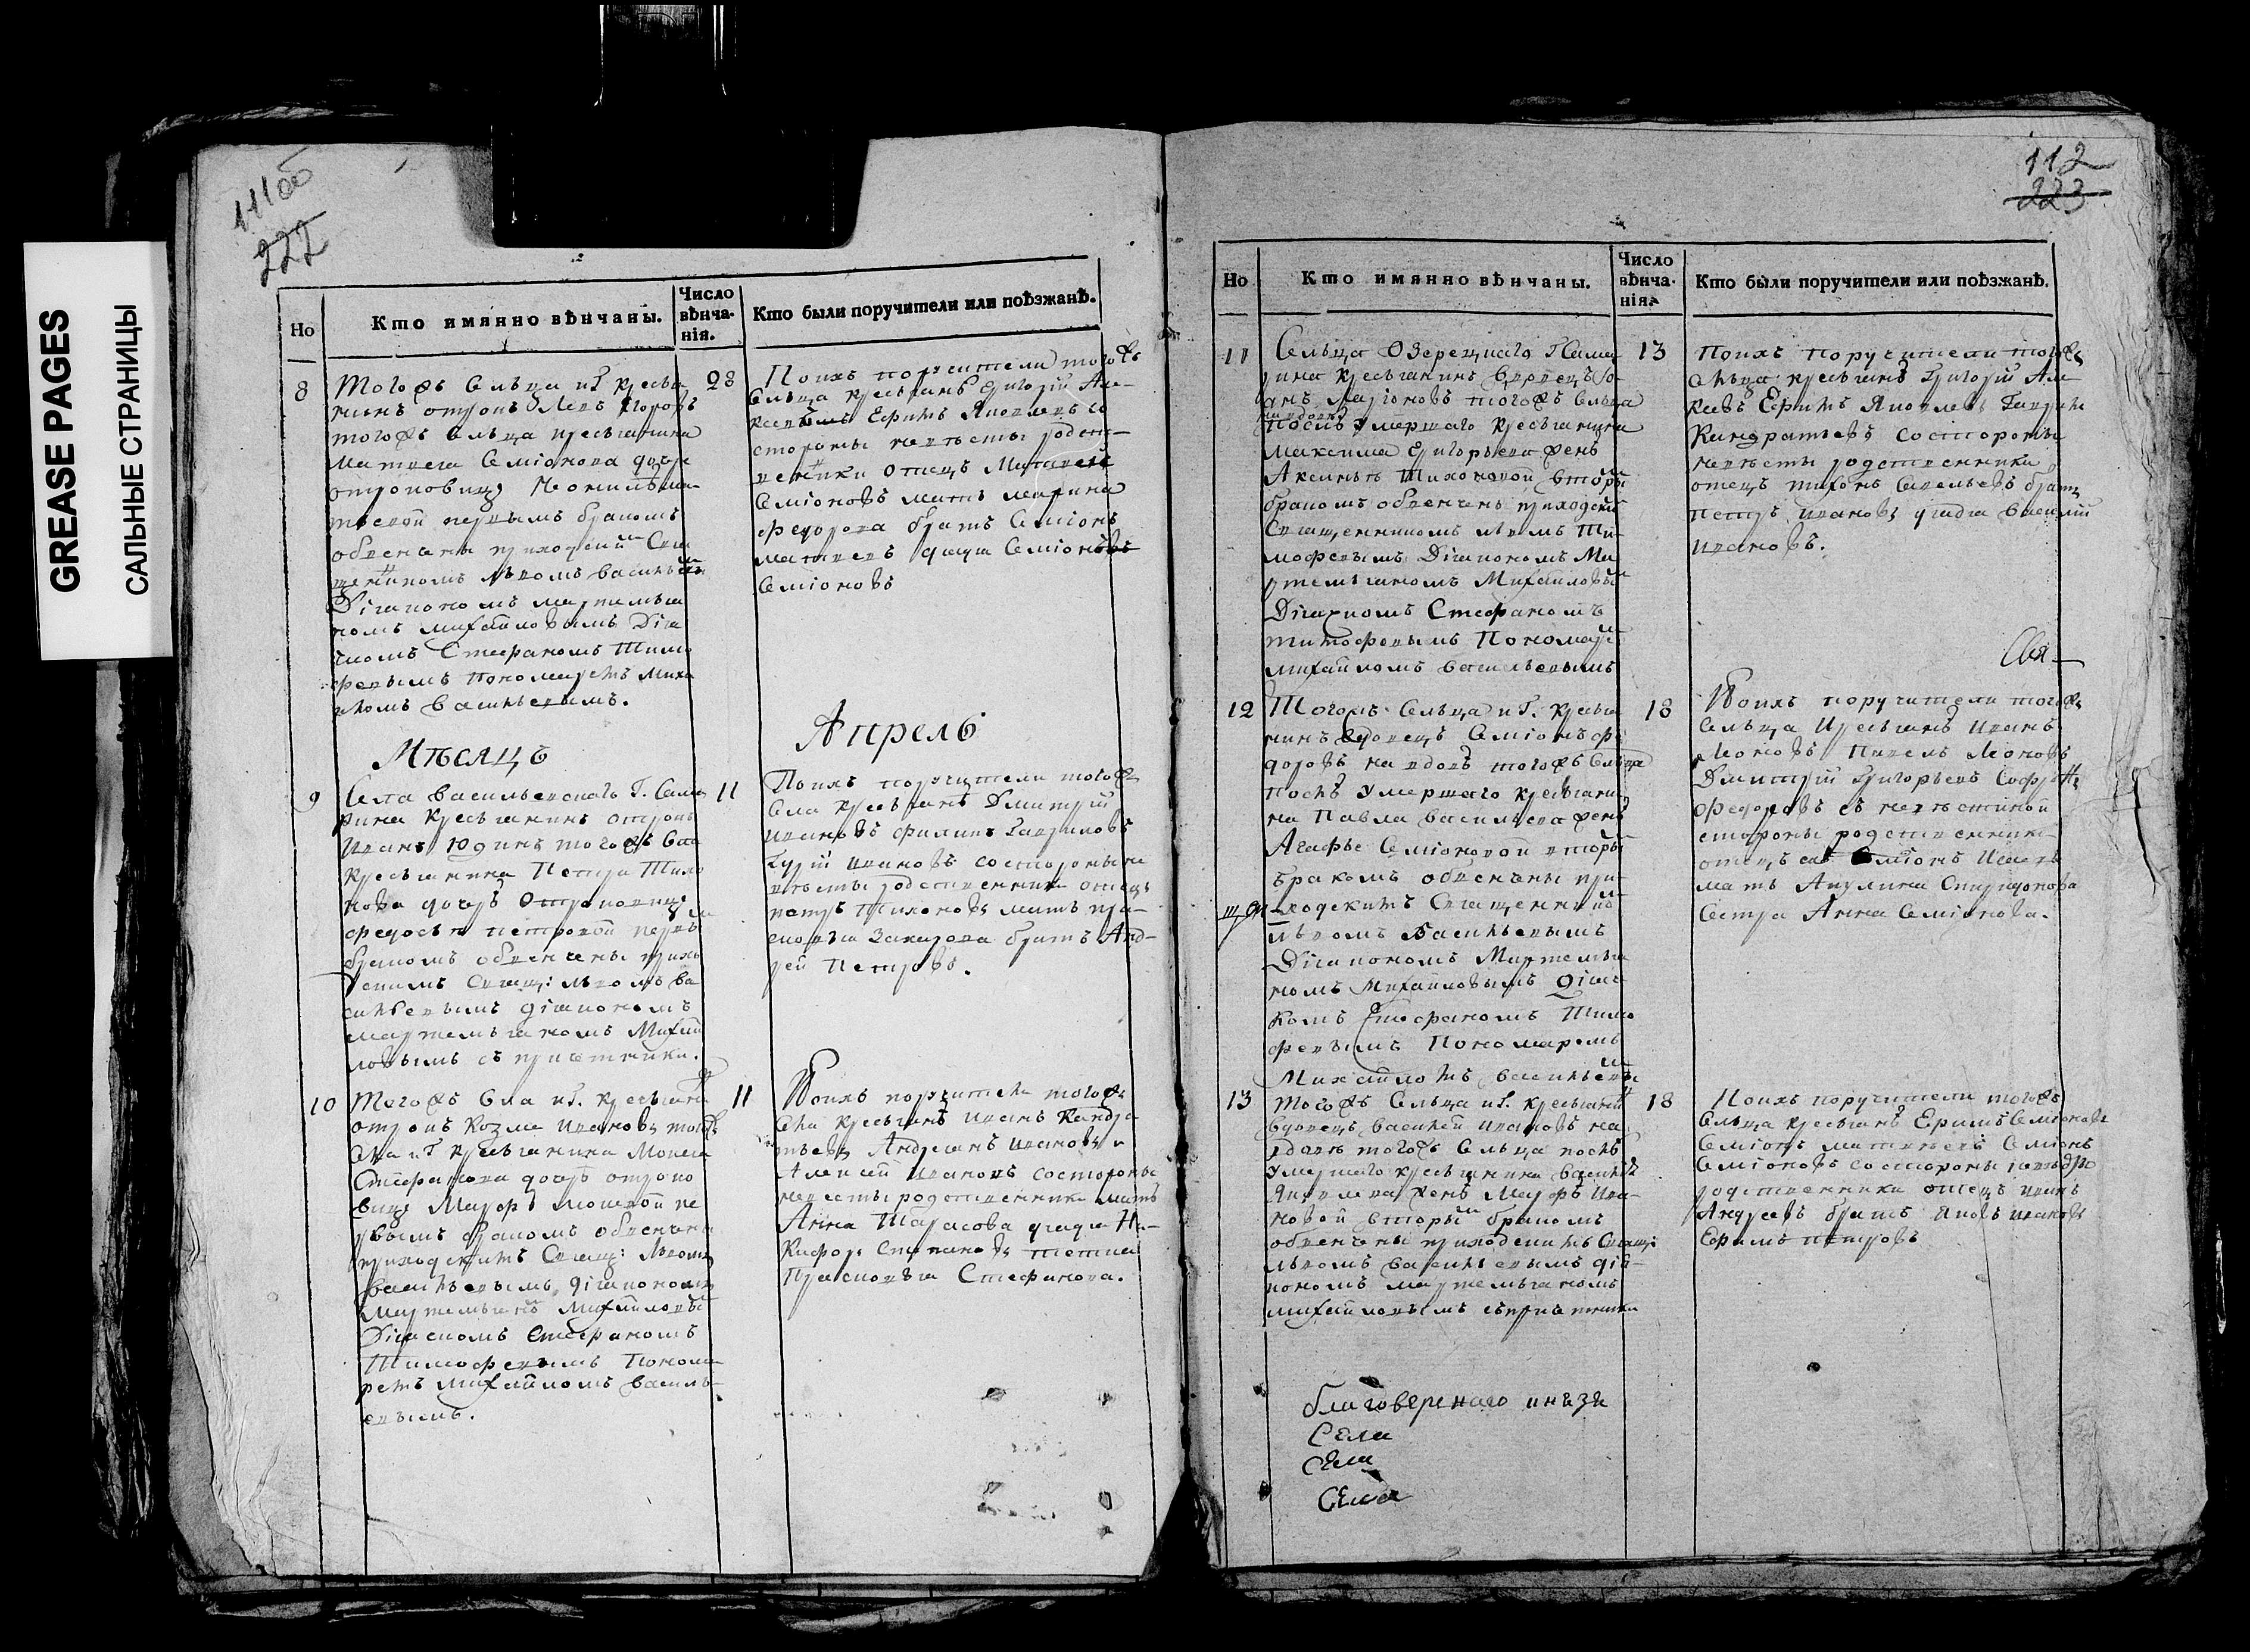 GREASE PAGES
САЛЬНЫЕ СТРАНИЦЫ
111об
222
Но
Кто имянно вѣнчаны.
Число вѣнча-нія.
Кто были поручители или поѣзжанѣ.
8
Тогожъ сельца и Г. кресья
нинъ отрокъ Левъ Егоровъ
тогожъ сельца кресьянина
Матвея Семіонова дочерь
отроковицу
первымъ бракомъ
обвенчаны приходским Свя
щенникомъ Львомъ Васильевым
Діакономъ Мартемья
номъ Михайловымъ Дья
чкомъ Стефаномъ Тимо
феевымъ Пономаремъ Миха
иломъ Васильевымъ.
28
По ихъ поручители тогожъ
сельца кресьянѣ Григорій Але-
ксеевъ Ефимъ Яковлевъ со
стороны невесты родст-
венники отецъ Матвей
Семіоновъ мать Марина
Федорова братъ Семіонъ
Матвеевъ дядя
Семіоновъ
Мѣсяцъ
Апрель
9
Села Васильевскаго Г. Сама
рина кресьянинъ отрокъ
Иванъ Юдинъ тогожъ села
кресьянина Петра Тихо
нова дочерь отроковицу
Федосья Петровой первым
бракомъ обвенчаны прихо
цкимъ Свящ: Львомъ Ва
сильевымъ діакономъ
Мартемьяномъ Михай
ловымъ съ причетники.
11
По ихъ поручители тогожъ
села кресьянѣ Дмитрій
Ивановъ Филипъ Гавриловъ
Гурій Ивановъ со стороны не
весты родственники отецъ
Петръ Тихоновъ мать пра-
сковья Захарова братъ Анд-
рей Петровъ.
10
Тогожъ села и Г. кресьянин
отрокъ Козма Ивановъ тогожъ
села и Г кресьянина Моисея
Стефанова дочерь отроко
вицу Марфу Моисевой пе
рвымъ бракомъ обвенчаны
приходскимъ Свящ: Львомъ
Васильевымъ, діакономъ
Мартемьяномъ Михайловым
Діячкомъ Стефаномъ
Тимофеевымъ Понома
ремъ Михайломъ Василь-
евымъ.
11
По ихъ поручители тогожъ
села кресьянѣ Иванъ Кандра
тьевъ Андреянъ Ивановъ
Алексей Ивановъ со стороны
невесты родственники мать
Анна Тарасова дядя Ни-
кифоръ Степановъ тетка
Прасковья Стефанова.
112
223
Но
Кто имянно вѣнчаны.
Число вѣнча-нія.
Кто были поручители или поѣзжанѣ.
11
Сельца Озерецкаго Г Сама
рина кресьянинъ вдовецъ
Ларіоновъ тогожъ сельца
на вдовѣ
послѣ умершаго кресьянина
Максима Григорьева женѣ
Аксиньѣ Тихоновой вторым
бракомъ обвенчаны приходским
Священникомъ Львомъ Ти-
мофеевымъ Діакономъ Ма
ртемьяномъ Михайловым
Діячкомъ Стефаномъ
Тимофеевымъ Пономарем
Михайломъ Васильевымъ
13
По ихъ поручители тогожъ
сельца кресьянѣ Григорій Але
ксевъ Ефимъ Яковлевъ Гаврила
Кандратьевъ со стороны
невесты родственники
отецъ Тихонъ Савельевъ братъ
Петръ Ивановъ дядя Василій
Ивановъ.
Свя-
12
Тогожъ Сельца и Г. кресья
нинъ вдовецъ Семіонъ Фе
доровъ на вдовѣ тогожъ сельца
послѣ умершаго кресьяни
на Павла Васильева женѣ
Агафье Семіоновой вторым
бракомъ обвенчаны при-
ходскимъ Священником
Львомъ Васильевымъ
Діакономъ Мартемья
номъ Михайловымъ діяч
комъ Стефаномъ Тимо
феевымъ Пономаремъ
Михайломъ Васильевым
18
По ихъ поручители тогожъ
сельца кресьянѣ Иванъ
Леоновъ Павелъ Леоновъ
Дмитрій Григорьевъ Софронъ
Федоровъ съ невестиной
стороны родственники
отецъ ея Семіонъ Исаевъ
мать Акулина Спиридонова
Сестра Анна Семіонова.
13
Тогожъ Сельца и Г. кресьянин
вдовецъ Василей Ивановъ на
вдове тогожъ сельца послѣ
умершего кресьянина Василья
Яковлева женѣ Марфѣ Ива-
новой вторым бракомъ
обвенчаны приходскимъ Свящ:
Львомъ Васильевымъ діа-
кономъ Мартемьяномъ
Михайловымъ съ причетники
18
По ихъ поручители тогожъ
сельца кресьянѣ Ефимъ Семіоновъ
Семіонъ Матвеевъ Семіонъ
Семіоновъ со стороны
родственники отецъ Иванъ
Андреевъ братъ Яковъ Ивановъ
Ефимъ Петровъ
благовернаго князя
Села
Села
Села